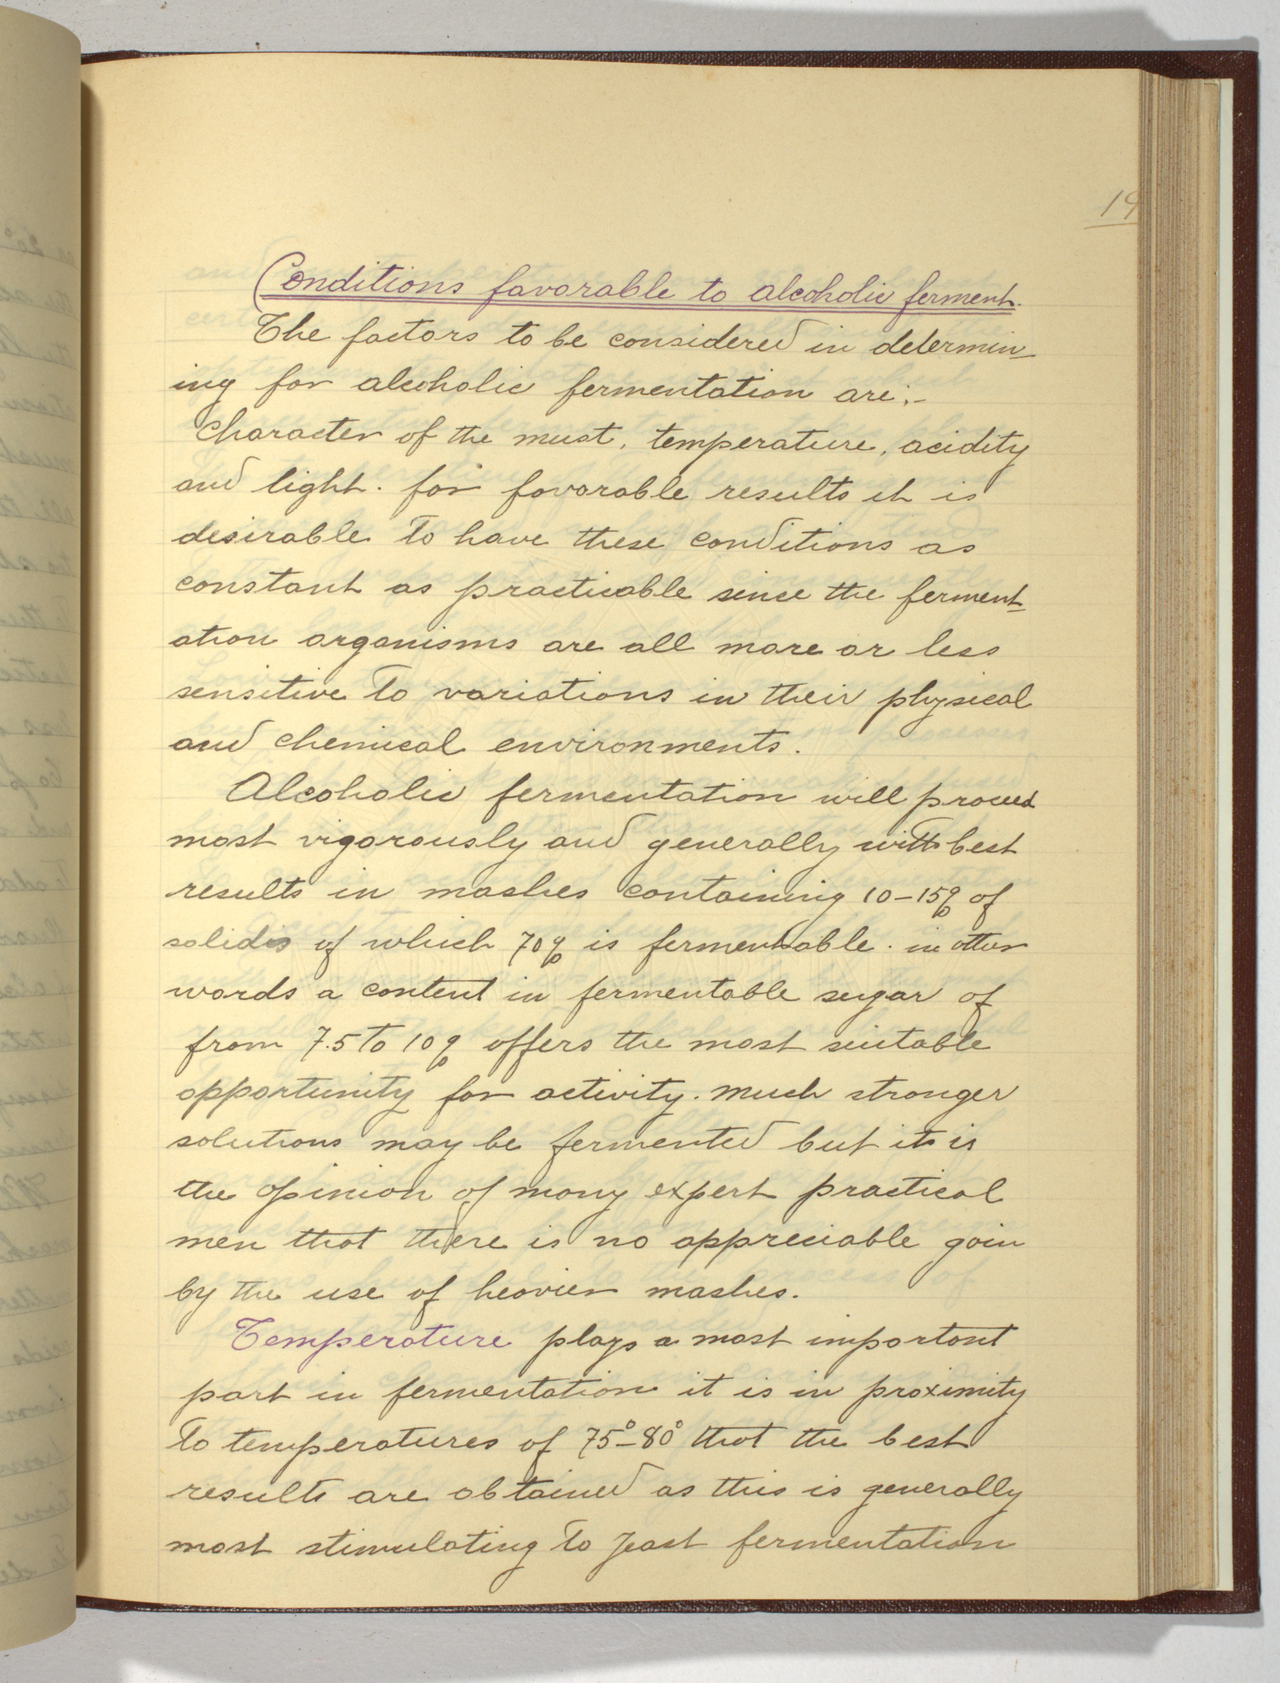 19
Conditions favorable to alcoholic ferment.
The factors to be considered in determin-
ing for alcoholic fermentation are;-
Character of the must, temperature, acidity
and light. for favorable results it is
desirable to have these conditions as
constant as practicable since the ferment-
ation organisms are all more or less
sensitive to variations in their physical
and chemical environments.
Alcoholic fermentation will proceed
most vigorously and generally with best
results in mashes containing 10-15% of
solids of which 70% is fermentable. in other
words a content in fermentable sugar of
from 7.5 to 10% offers the most suitable
opportunity for activity. much stronger
solutions may be fermented but it is
the opinion of many expert practical
men that there is no appreciable gain
by the use of heavier mashes.
Temperature plays a most important
part in fermentation it is in proximity
to temperatures of 75°-80° that the best
results are obtained as this is generally
most stimulating to yeast fermentation